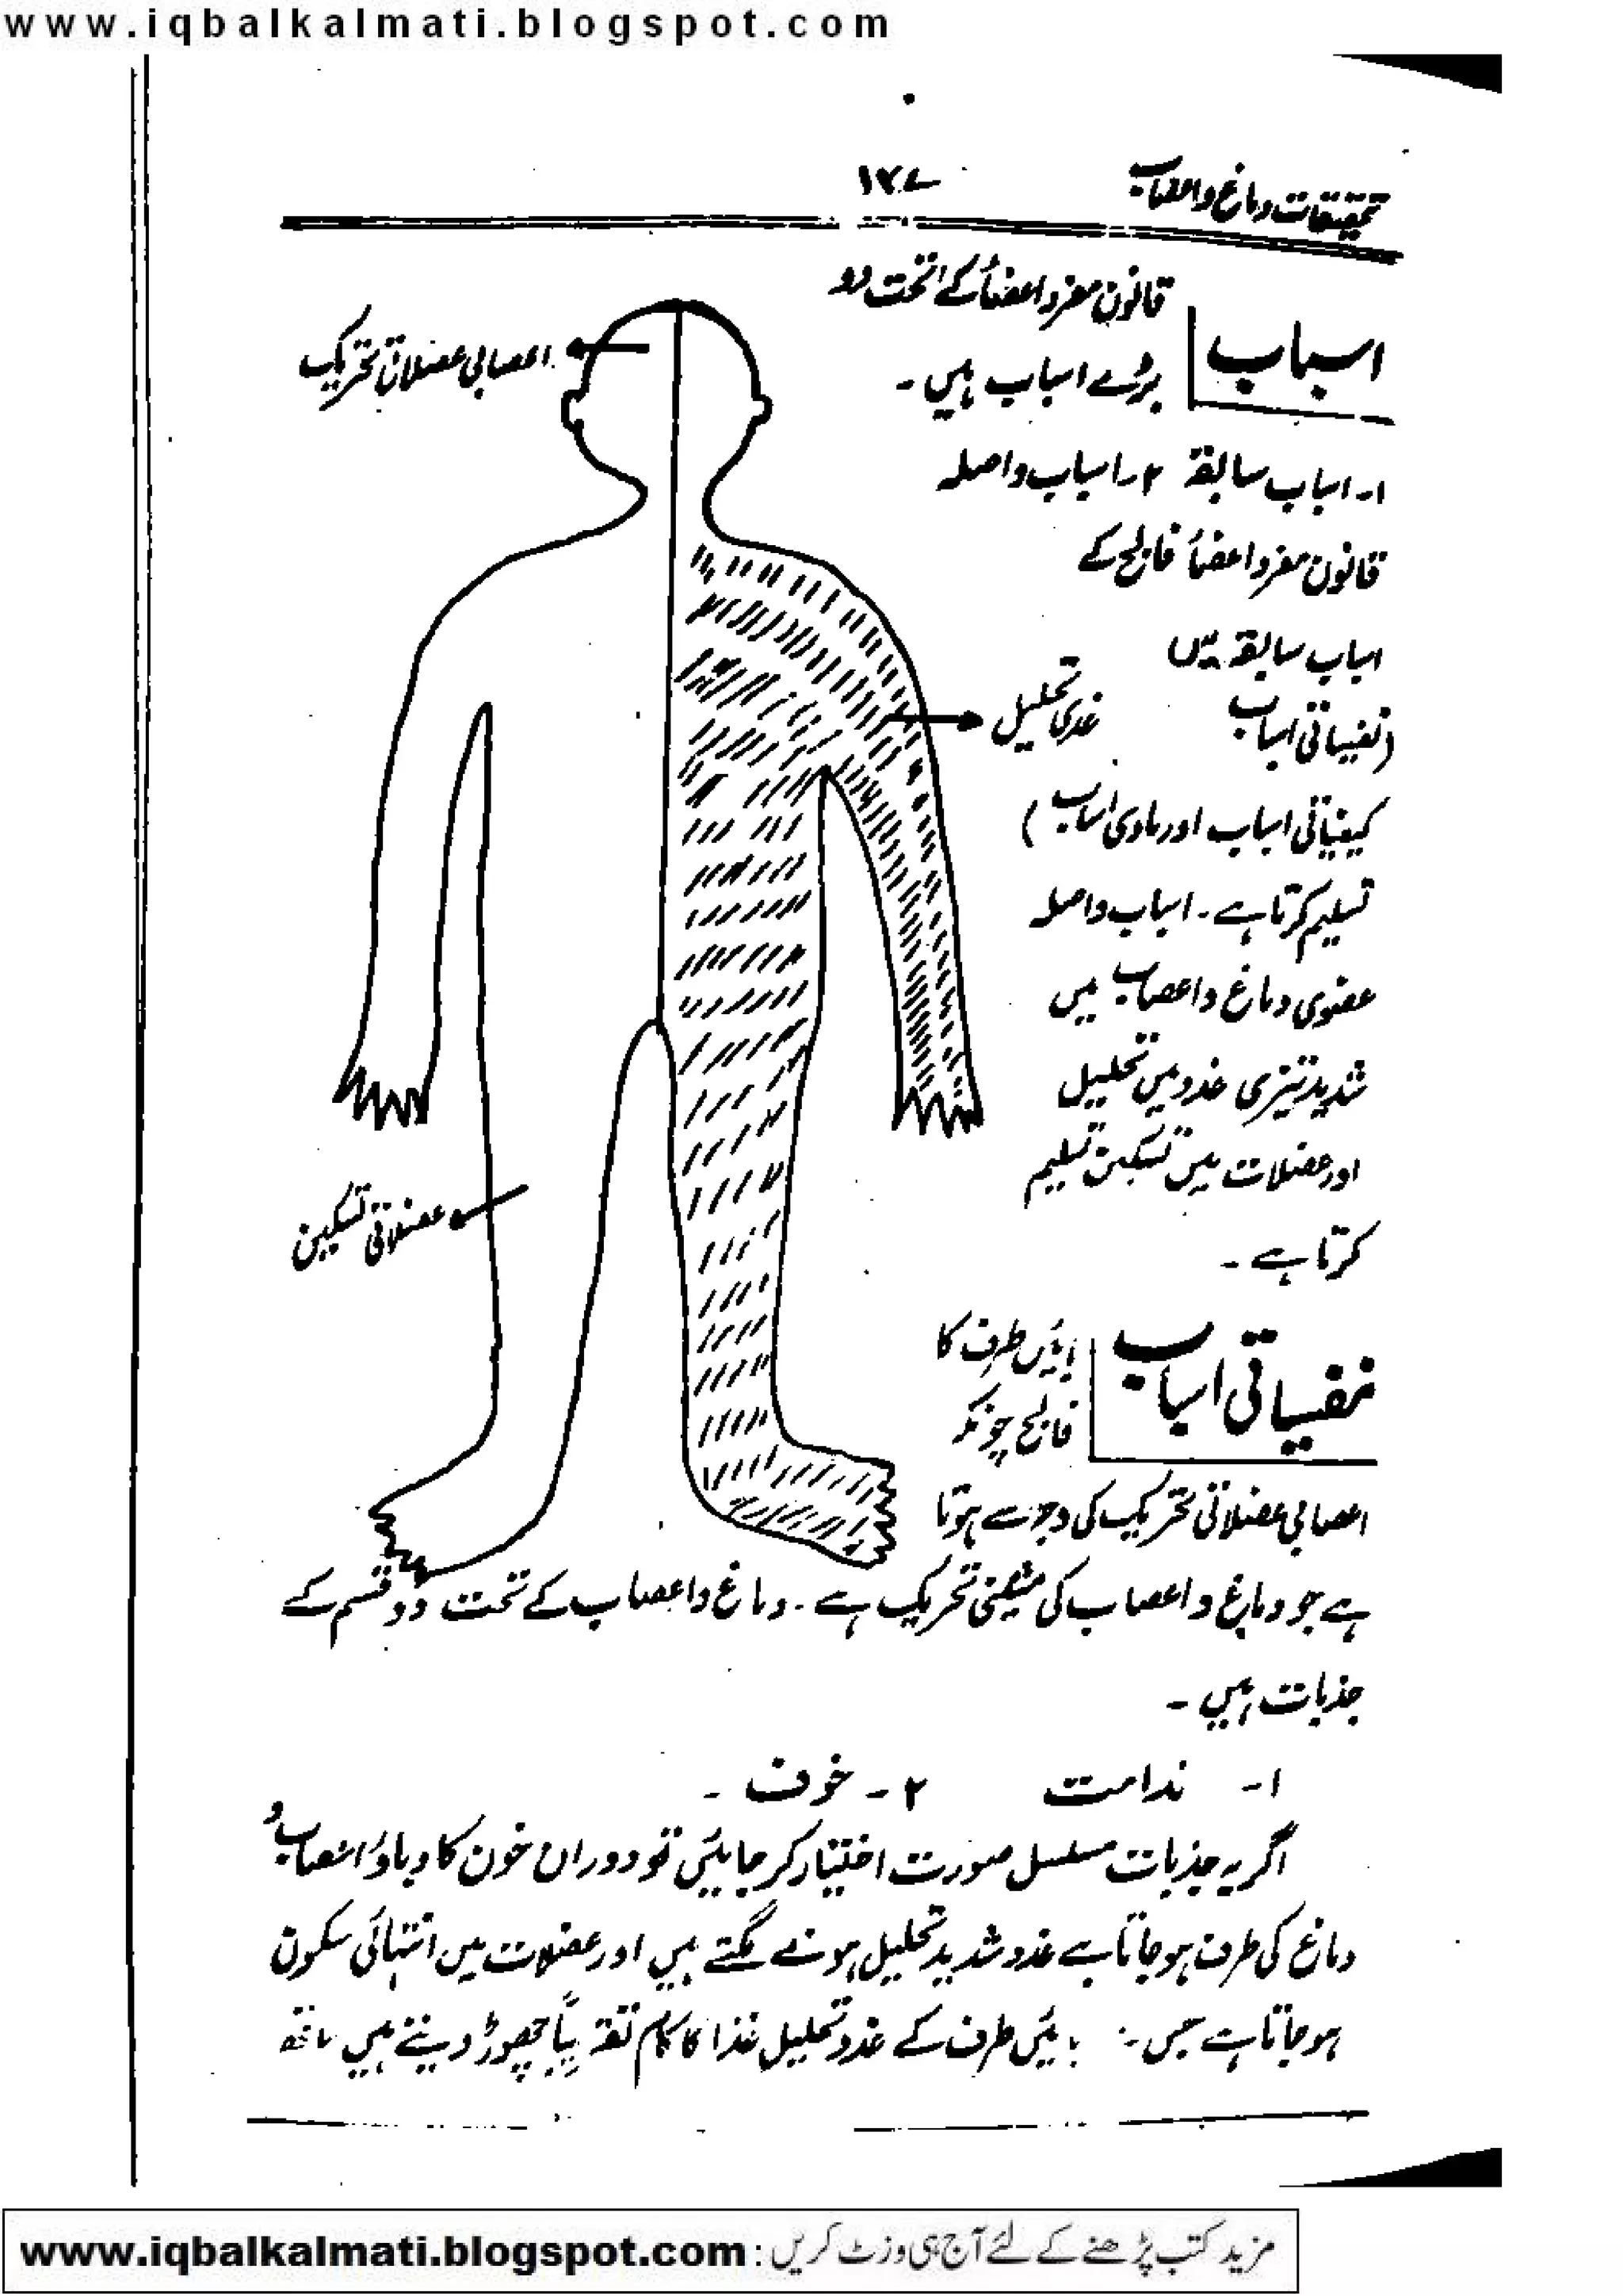 www.iqbalkalmati.blogspot.com
تحقیقات دماغ و اعصاب ۱۲۷
اسباب
قانون مفرد اعضأ کے ماتحت دو
بڑے اسباب ہیں۔
۱۔ اسباب سابقہ ۲۔ اسباب واصلہ
قانون مفرد اعضأ فالج کے
اسباب سابقہ میں
(نفسیاتی اسباب
کیفیاتی اسباب اور مادی اسباب)
تسلیم کرتا ہے۔ اسباب واصلہ
عضوی دماغ و اعصاب میں
شدید تیزی غدد میں تحلیل
اور عضلات میں تسکین تسلیم
کرتا ہے۔
اعصابی عضلاتی تحریک
غدی تحلیل
عضلاتی تسکین
نفسیاتی اسباب
بائیں طرف کا
فالج چونکہ
اعصابی عضلاتی تحریک کی وجہ سے ہوتا
ہے جو دماغ و اعصاب کی مشینی تحریک ہے۔ دماغ و اعصاب کے تحت دو قسم کے
جذبات ہیں۔
۱۔ ندامت ۲۔ خوف۔
اگر یہ جذبات مسلسل صورت اختیار کر جائیں تو دوران خون کا دباؤ اعصاب و
دماغ کی طرف ہو جاتا ہے غدد شدید تحلیل ہونے لگتے ہیں اور عضلات میں انتہائی سکون
ہو جاتا ہے جس بائیں طرف کے غدد تحلیل غذا کا کام تقریباً چھوڑ دیتے ہیں ساتھ
مزید کتب پڑھنے کے لئے آج ہی وزٹ کریں : www.iqbalkalmati.blogspot.com